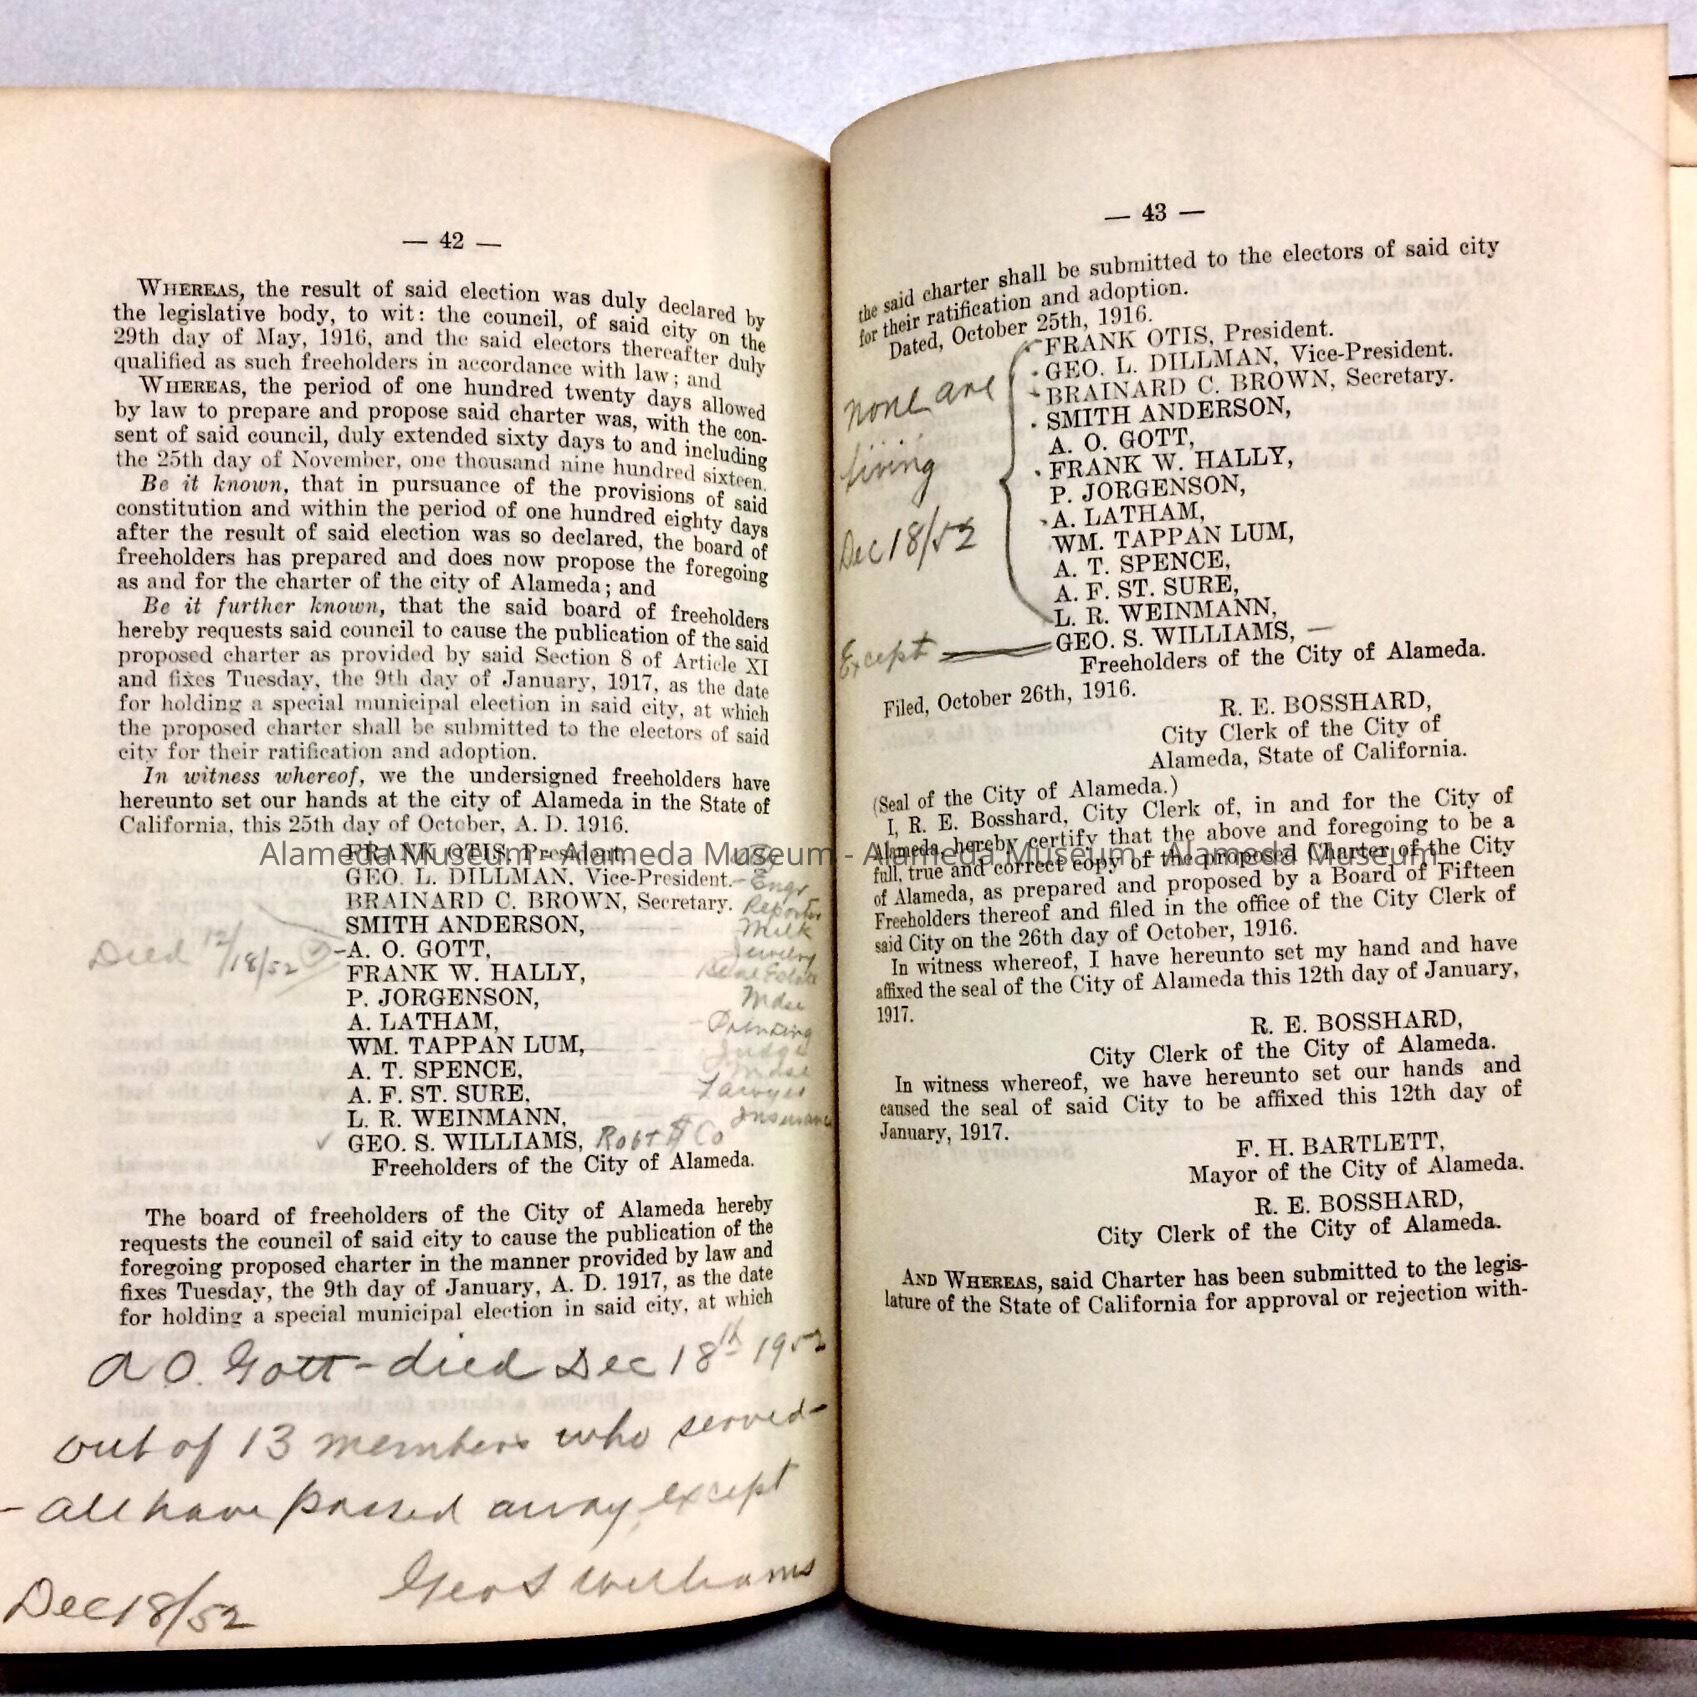 — 42 —
WHEREAS, the result of said election was duly declared by
the legislative body, to wit: the council, of said city on the
29th day of May, 1916, and the said electors thereafter duly
qualified as such freeholders in accordance with law; and
WHEREAS, the period of one hundred twenty days allowed
by law to prepare and propose said charter was, with the con-
sent of said council, duly extended sixty days to and including
the 25th day of November, one thousand nine hundred sixteen.
Be it known, that in pursuance of the provisions of said
constitution and within the period of one hundred eighty days
after the result of said election was so declared, the board of
freeholders has prepared and does now propose the foregoing
as and for the charter of the city of Alameda; and
Be it further known, that the said board of freeholders
hereby requests said council to cause the publication of the said
proposed charter as provided by said Section 8 of Article XI
and fixes Tuesday, the 9th day of January, 1917, as the date
for holding a special municipal election in said city, at which
the proposed charter shall be submitted to the electors of said
city for their ratification and adoption.
In witness whereof, we the undersigned freeholders have
hereunto set our hands at the city of Alameda in the State of
California, this 25th day of October, A. D. 1916.
FRANK OTIS, President.
GEO. L. DILLMAN, Vice-President. - Engr
BRAINARD C. BROWN, Secretary. Reporter
SMITH ANDERSON, Milk
Died 12/18/52 A. O. GOTT, Jewelry
FRANK W. HALLY, Real Estate
P. JORGENSON, Mdse
A. LATHAM, Printing
WM. TAPPAN LUM, Judge
A. T. SPENCE, Mdse
A. F. ST. SURE, Lawyer
L. R. WEINMANN, Insurance
✓ GEO. S. WILLIAMS, Robt & Co
Freeholders of the City of Alameda.
The board of freeholders of the City of Alameda hereby
requests the council of said city to cause the publication of the
foregoing proposed charter in the manner provided by law and
fixes Tuesday, the 9th day of January, A. D. 1917, as the date
for holding a special municipal election in said city, at which
A O. Gott - died Dec 18th 1952
out of 13 members who served -
- all have passed away, except
Geo S Williams
Dec 18/52
— 43 —
the said charter shall be submitted to the electors of said city
for their ratification and adoption.
Dated, October 25th, 1916.
FRANK OTIS, President.
GEO. L. DILLMAN, Vice-President.
BRAINARD C. BROWN, Secretary.
SMITH ANDERSON,
A. O. GOTT,
FRANK W. HALLY,
P. JORGENSON,
A. LATHAM,
WM. TAPPAN LUM,
A. T. SPENCE,
A. F. ST. SURE,
L. R. WEINMANN,
GEO. S. WILLIAMS, —
none are
living
Dec 18/52
Except
Freeholders of the City of Alameda.
Filed, October 26th, 1916.
R. E. BOSSHARD,
City Clerk of the City of
Alameda, State of California.
(Seal of the City of Alameda.)
I, R. E. Bosshard, City Clerk of, in and for the City of
Alameda, hereby certify that the above and foregoing to be a
full, true and correct copy of the proposed Charter of the City
of Alameda, as prepared and proposed by a Board of Fifteen
Freeholders thereof and filed in the office of the City Clerk of
said City on the 26th day of October, 1916.
In witness whereof, I have hereunto set my hand and have
affixed the seal of the City of Alameda this 12th day of January,
1917.
R. E. BOSSHARD,
City Clerk of the City of Alameda.
In witness whereof, we have hereunto set our hands and
caused the seal of said City to be affixed this 12th day of
January, 1917.
F. H. BARTLETT,
Mayor of the City of Alameda.
R. E. BOSSHARD,
City Clerk of the City of Alameda.
AND WHEREAS, said Charter has been submitted to the legis-
lature of the State of California for approval or rejection with-
Alameda Museum - Alameda Museum - Alameda Museum - Alameda Museum